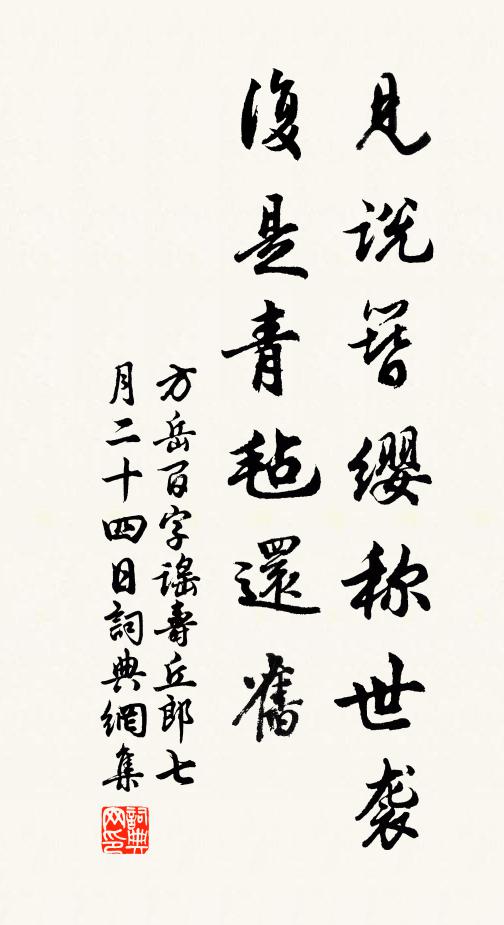 见说簪缨称世袭
復是青毡還舊
方岳百字謠壽丘郎七
月二十四日詞典網集
詞典網印